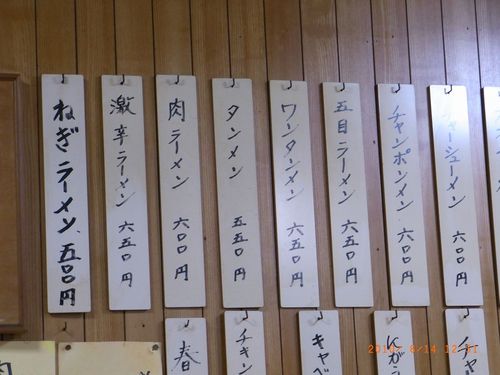 ねぎラーメン、五〇〇円
激辛ラーメン 六五〇円
肉ラーメン 六〇〇円
タンメン 五五〇円
ワンタンメン 六五〇円
五目ラーメン 六五〇円
チャンポンメン 六〇〇円
チャーシューメン 六〇〇円
春
チキン
キャベ
にんが
チャ